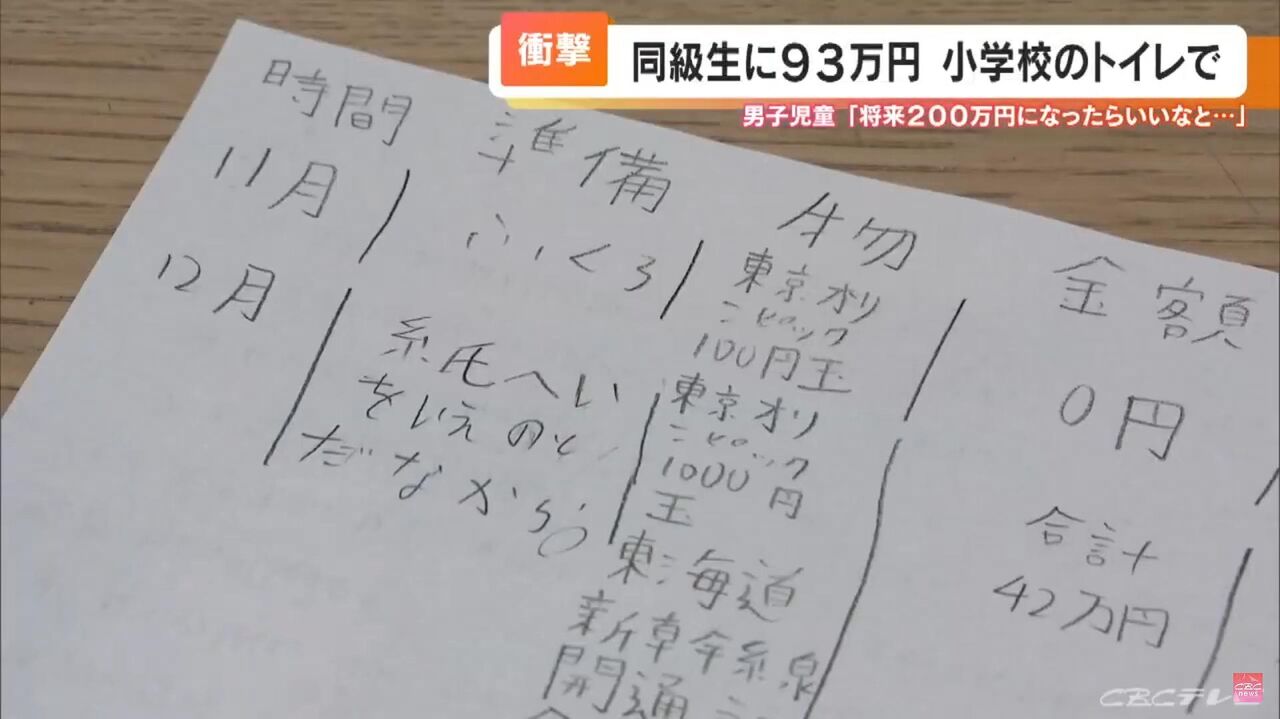 衝撃
同級生に93万円 小学校のトイレで
男子児童「将来200万円になったらいいなと…」
時間 準備 物 金額
11月 ふくろ 東京オリ
ンピック
100円玉 0円
12月 紙へい
をいえのと
だなから。 東京オリ
ンピック
1000円
玉
東海道
新幹線
開通 合計
42万円
CBC
news
CBCテレビ